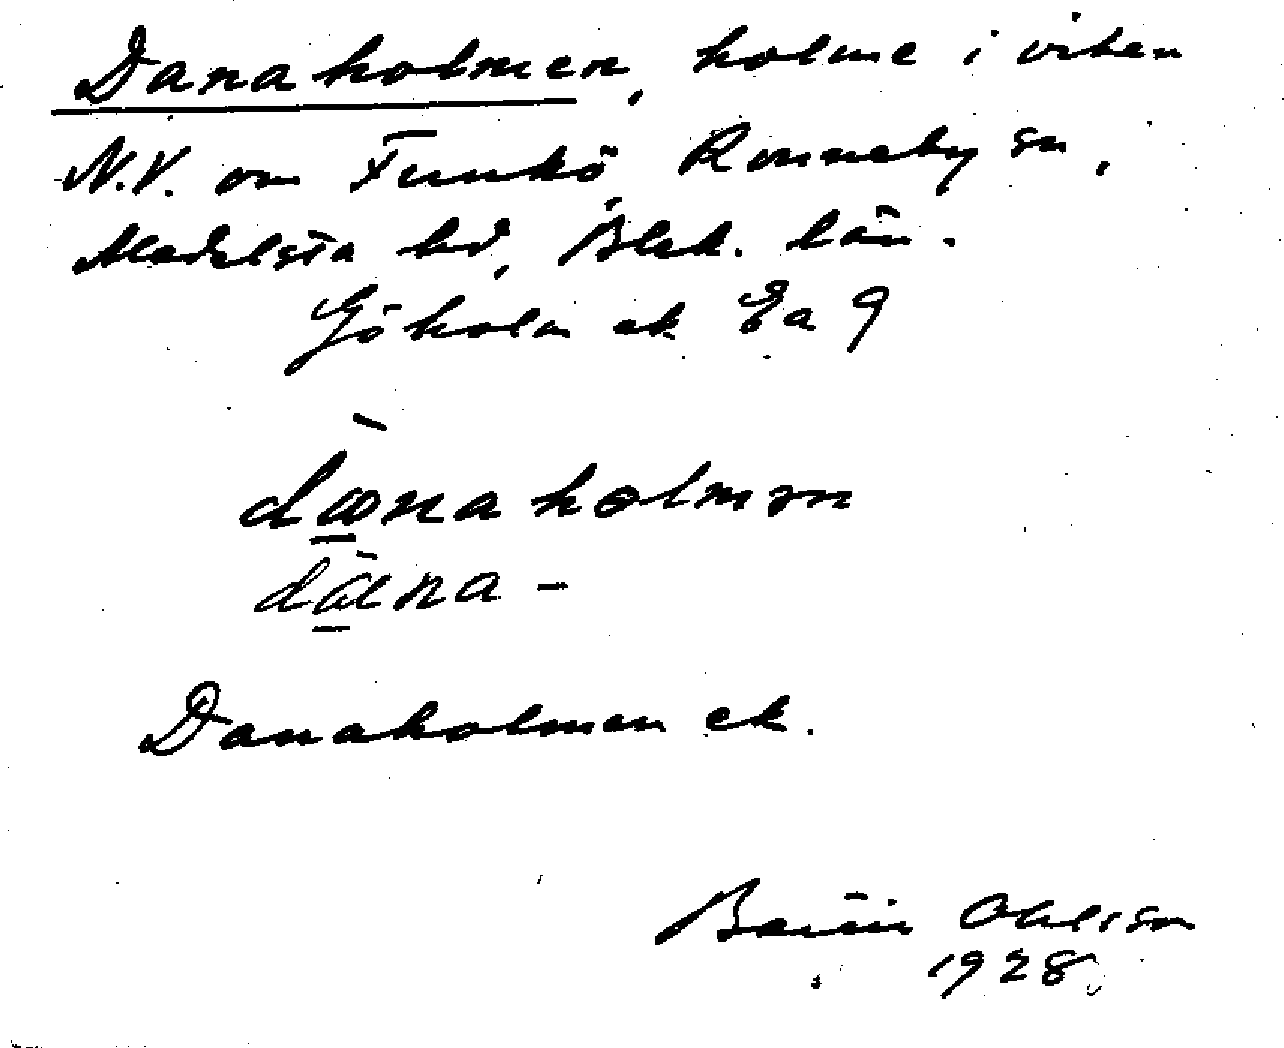 Danaholmen, holme i viken
N.V. om Funkö, Ronneby sn,
Medelsta hd, Blek. län.
Göholm ek Ea 9
dænaholmən
dæna-
Danaholmen ek.
Ohlsson
1928